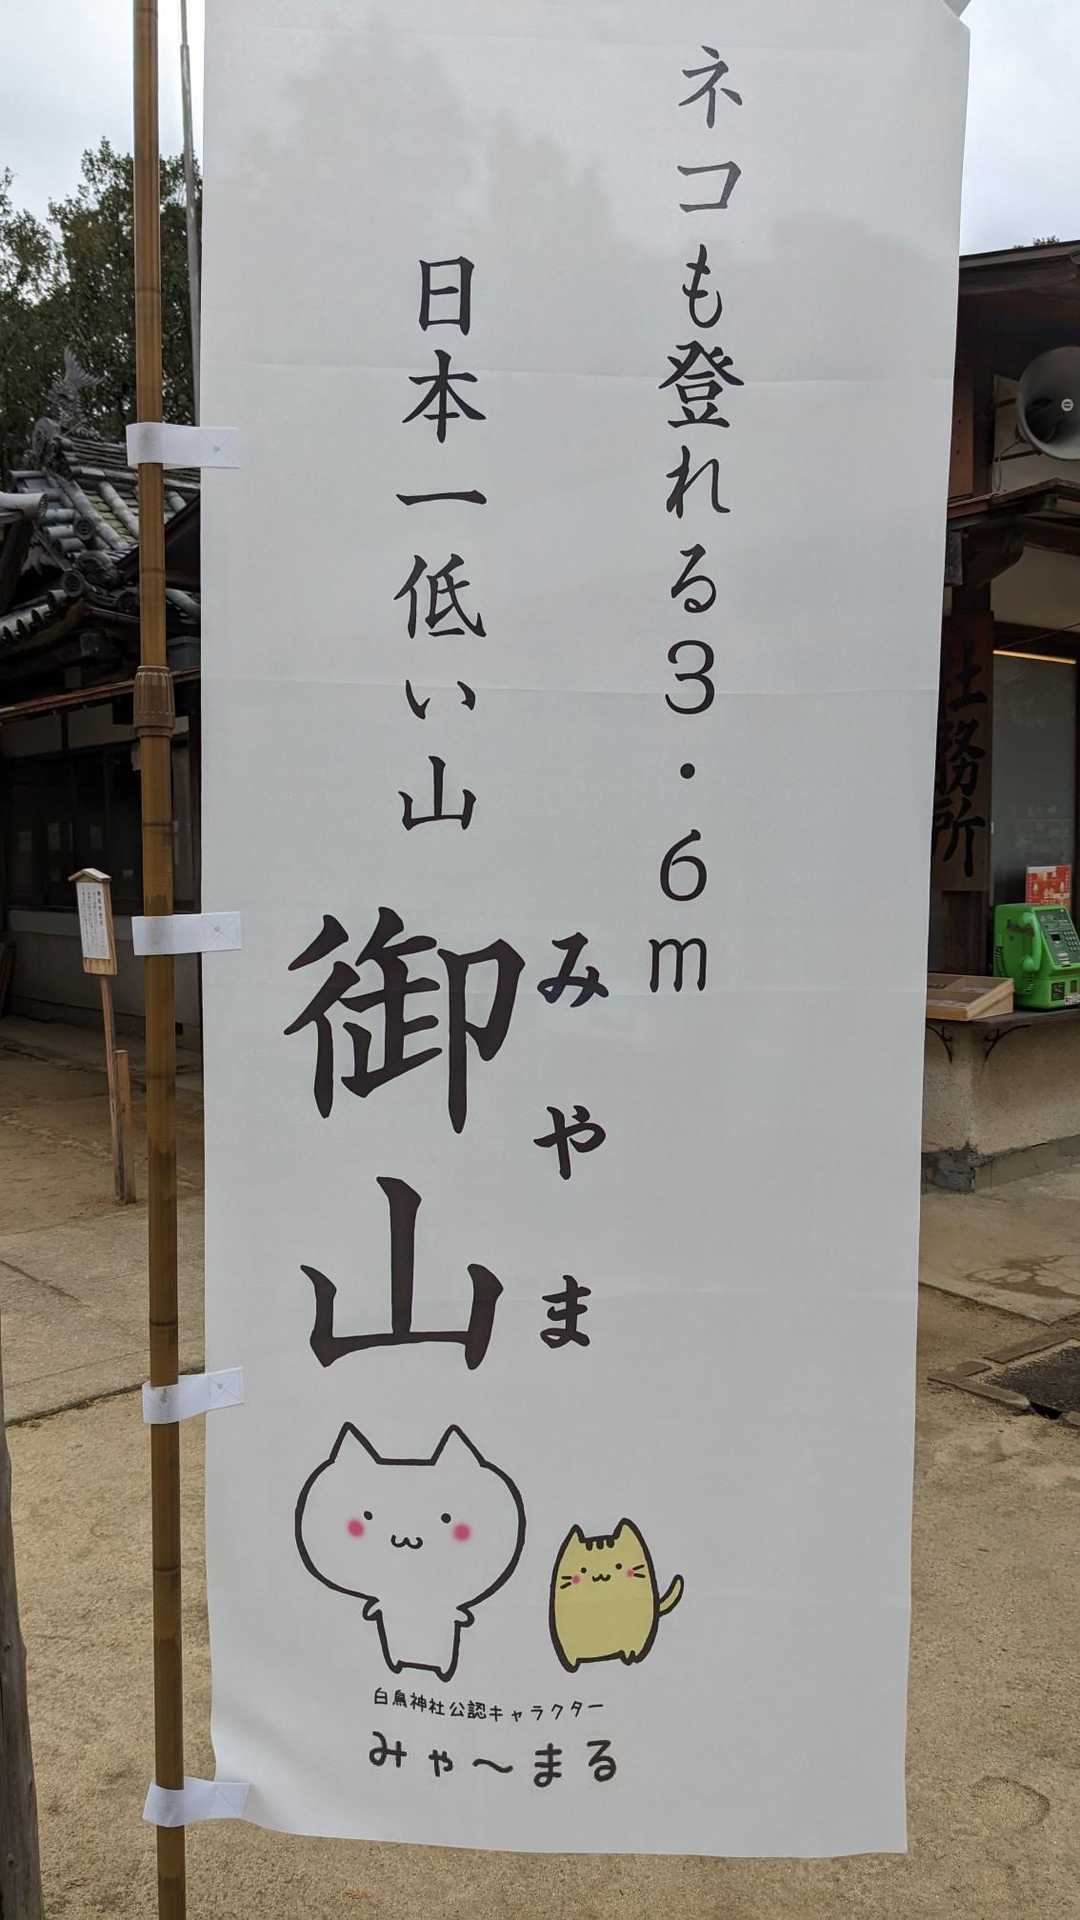 ネコも登れる3.6m
日本一低い山
御山
みやま
白鳥神社公認キャラクター
みゃ〜まる
社務所